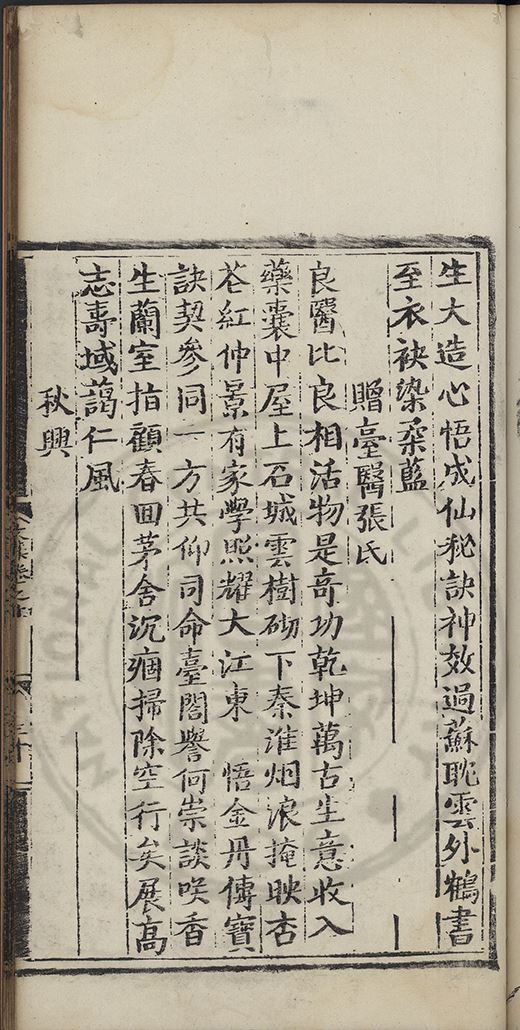 生大造心悟成仙秘訣神效過蘇耽雲外鶴書
至衣袂染柔藍
贈臺醫張氏
良醫比良相活物是奇功乾坤萬古生意收入
藥囊中屋上石城雲樹砌下秦淮烟浪掩映杏
花紅仲景有家學照耀大江東 悟金丹傳寶
訣契參同一方共仰司命臺閣譽何崇談咲香
生蘭室指顧春回茅舍沉痼掃除空行矣展高
志壽域藹仁風
秋興